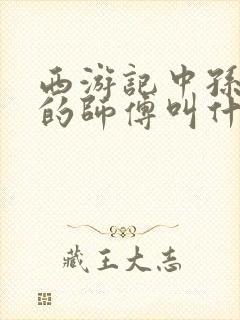 西游記中孫
的師傅叫什
藏王大志